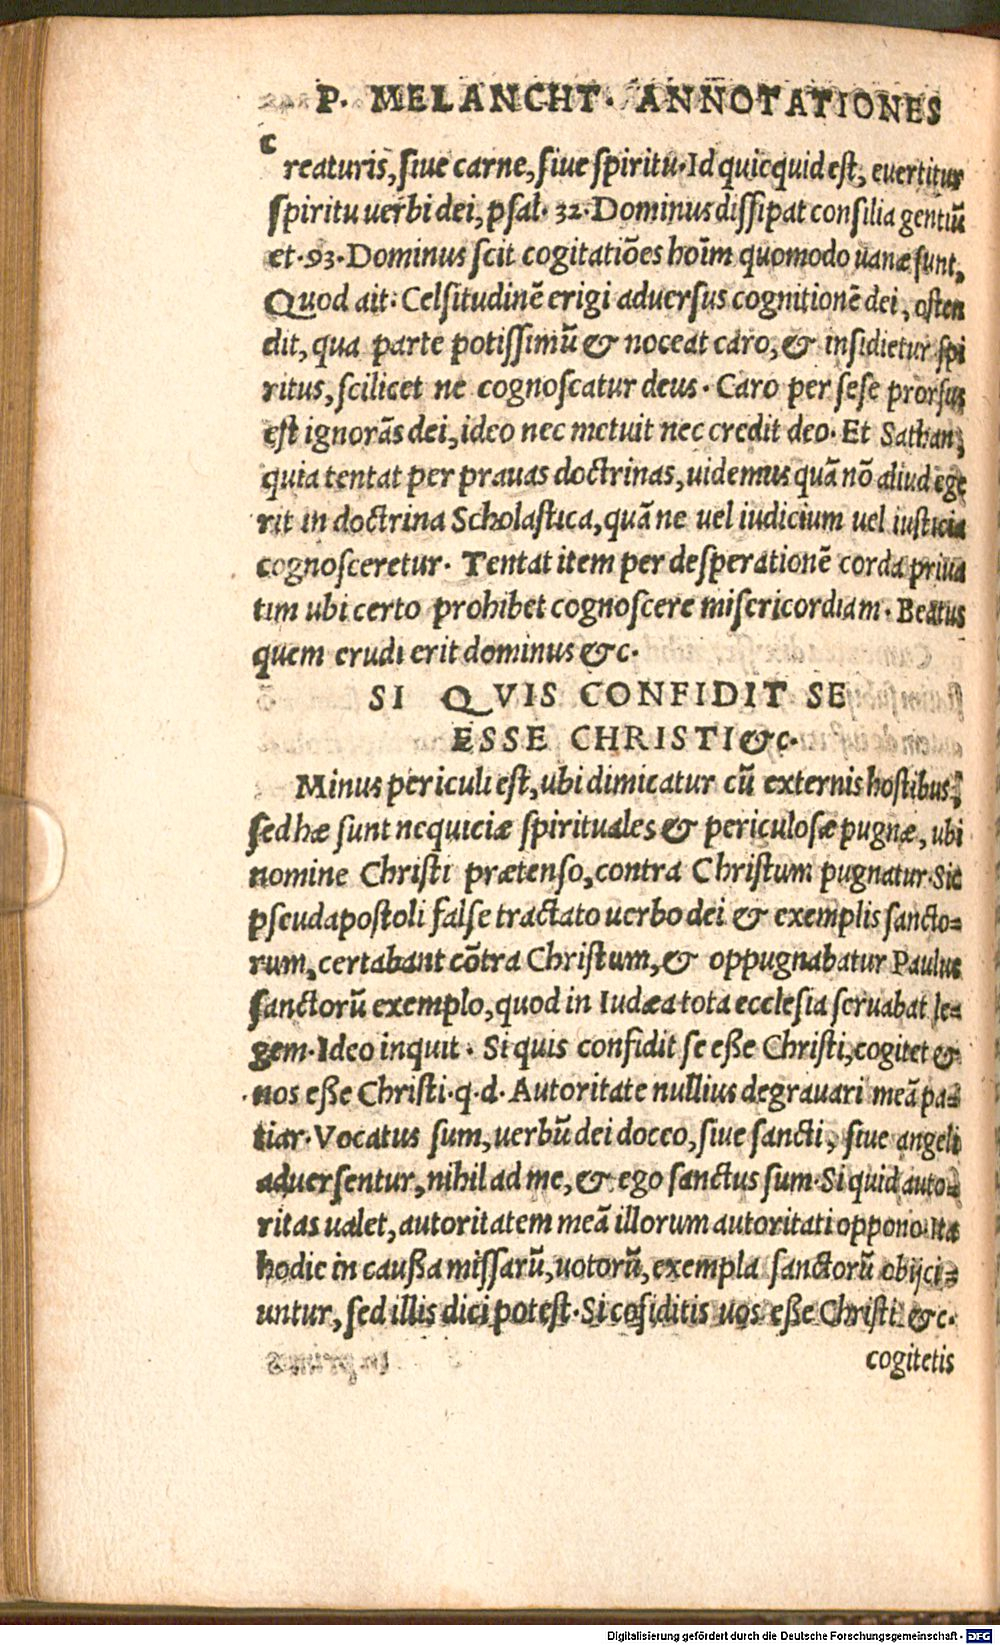 P. MELANCHT. ANNOTATIONES
creaturis, ſiue carne, ſiue ſpiritu. Id quicquid eſt, euertitur
ſpiritu uerbi dei, pſal. 32. Dominus diſſipat conſilia gentiū
et .93. Dominus ſcit cogitatiōes hoīm quomodo uanæ ſunt,
Quod ait: Celſitudinē erigi aduerſus cognitionē dei, oſten
dit, qua parte potiſſimū & noceat caro, & inſidietur ſpi
ritus, ſcilicet ne cognoſcatur deus. Caro per ſeſe prorſus
eſt ignorās dei, ideo nec metuit nec credit deo. Et Sathan,
quia tentat per prauas doctrinas, uidemus quā nō aliud ege
rit in doctrina Scholaſtica, quā ne uel iudicium uel iuſticia
cognoſceretur. Tentat item per deſperationē corda priua
tim ubi certo prohibet cognoſcere miſericordiam. Beatus
quem erudi erit dominus &c.
SI QVIS CONFIDIT SE
ESSE CHRISTI &c.
Minus periculi eſt, ubi dimicatur cū externis hoſtibus,
ſed hæ ſunt nequiciæ ſpirituales & periculoſæ pugnæ, ubi
nomine Chriſti prætenſo, contra Chriſtum pugnatur. Sic
pſeudapoſtoli falſe tractato uerbo dei & exemplis ſancto=
rum, certabant cōtra Chriſtum, & oppugnabatur Paulus
ſanctorū exemplo, quod in Iudæa tota eccleſia ſeruabat le=
gem. Ideo inquit. Si quis confidit ſe eße Chriſti, cogitet &
nos eße Chriſti. q. d. Autoritate nullius degrauari meā pa=
tiar. Vocatus ſum, uerbū dei doceo, ſiue ſancti, ſiue angeli
aduerſentur, nihil ad me, & ego ſanctus ſum. Si quid auto=
ritas ualet, autoritatem meā illorum autoritati oppono. Ita
hodie in caußa miſſarū, uotorū, exempla ſanctorū obijci=
untur, ſed illis dici poteſt. Si cōfiditis uos eße Chriſti &c.
cogitetis
Digitalisierung gefördert durch die Deutsche Forschungsgemeinschaft - DFG